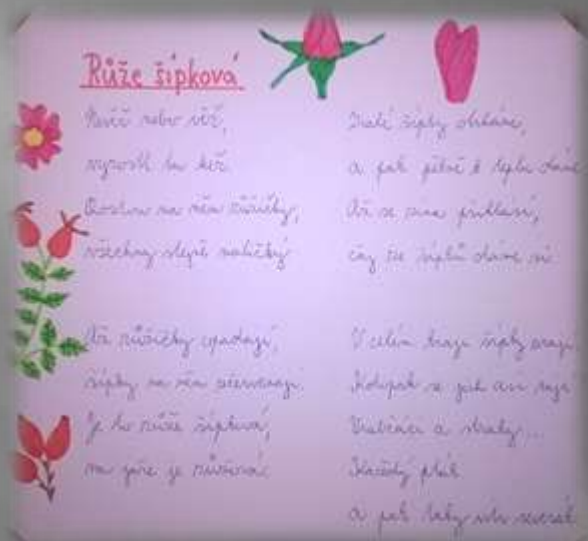 Růže šípková
Nevěř nebo věř,
vyrostl tu keř.
Kvetou na něm růžičky,
všechny slepě maličký
Až růžičky opadají,
šípky na něm zčervenají.
Je to růže šípková,
na jaře je růžová.
Zralé šípky
a pak pěkně k teplu dáme
Až se zima přihlásí,
čaj ze šípků dáme si
V celém kraji šípky zrají
Kolipak se jich asi
a straky...
Každý pták
a pak taky